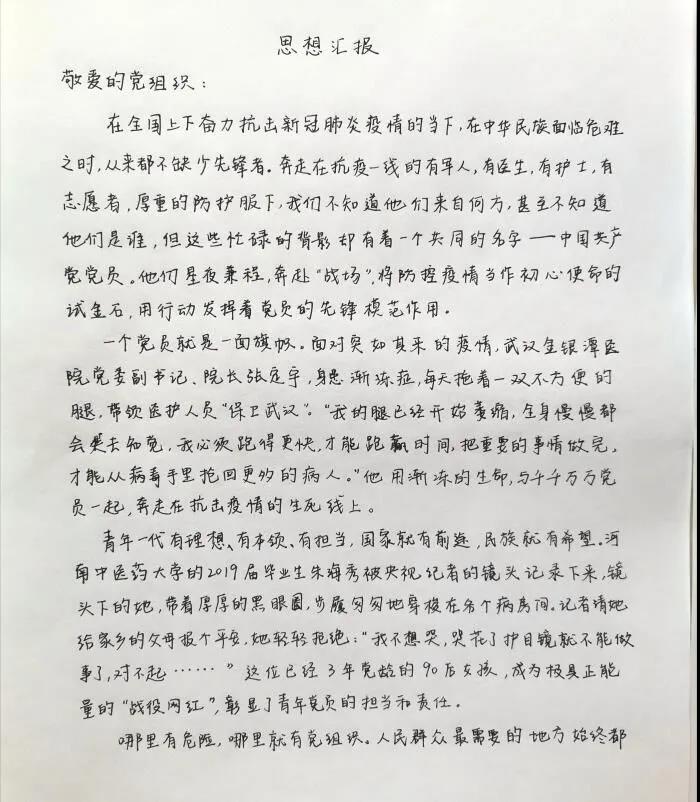 思想汇报
敬爱的党组织：
在全国上下奋力抗击新冠肺炎疫情的当下，在中华民族面临危难
之时，从来都不缺少先锋者。奔走在抗疫一线的有军人，有医生，有护士，有
志愿者，厚重的防护服下，我们不知道他们来自何方，甚至不知道
他们是谁，但这些忙碌的背影却有着一个共同的名字——中国共产
党党员。他们星夜兼程，奔赴“战场”，将防控疫情当作初心使命的
试金石，用行动发挥着党员的先锋模范作用。
一个党员就是一面旗帜。面对突如其来的疫情，武汉金银潭医
院党委副书记、院长张定宇，身患渐冻症，每天拖着一双不方便的
腿，带领医护人员“保卫武汉”。“我的腿已经开始萎缩，全身慢慢都
会失去知觉，我必须跑得更快，才能跑赢时间，把重要的事情做完，
才能从病毒手里抢回更多的病人。”他用渐冻的生命，与千千万万党
员一起，奔走在抗击疫情的生死线上。
青年一代有理想、有本领、有担当，国家就有前途，民族就有希望。河
南中医药大学的2019届毕业生朱海秀被央视记者的镜头记录下来，镜
头下的她，带着厚厚的黑眼圈，步履匆匆地穿梭在各个病房间。记者请她
给家乡的父母报个平安，她轻轻拒绝：“我不想哭，哭花了护目镜就不能做
事了，对不起……”这位已经3年党龄的90后女孩，成为极具正能
量的“战役网红”，彰显了青年党员的担当和责任。
哪里有危险，哪里就有党组织。人民群众最需要的地方始终都